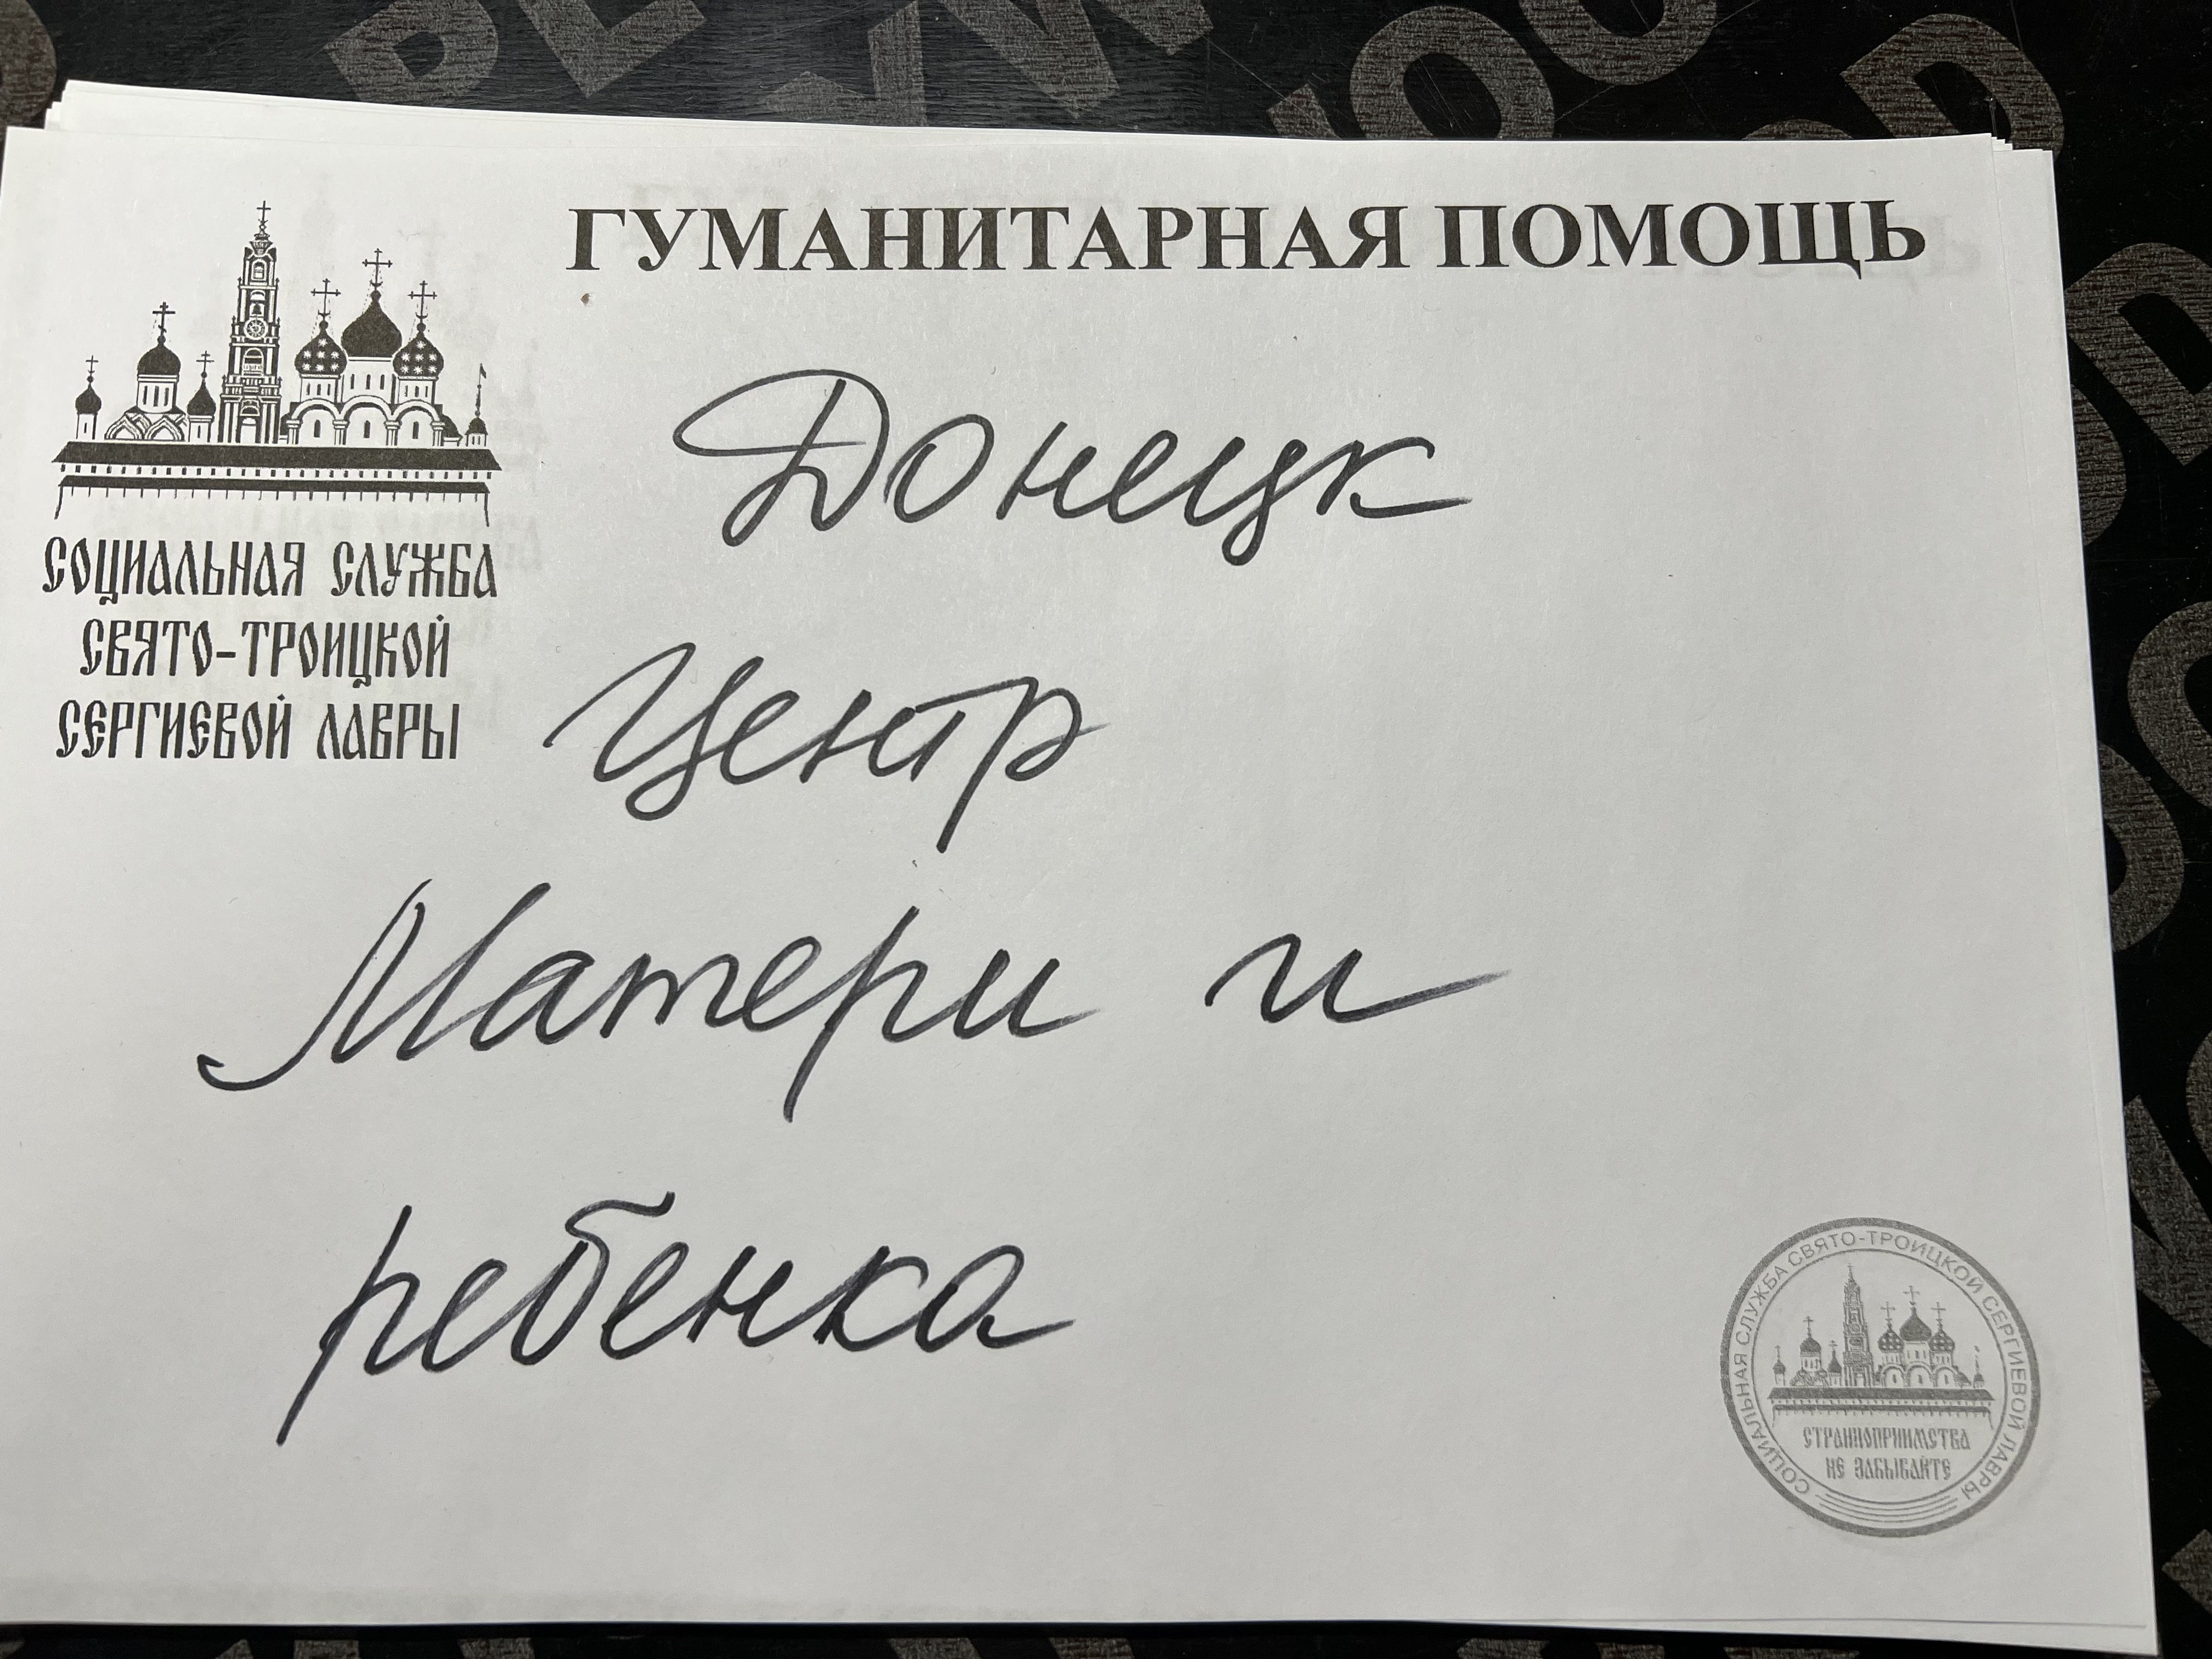 ГУМАНИТАРНАЯ ПОМОЩЬ
СОЦИАЛЬНАЯ СЛУЖБА
СВЯТО-ТРОИЦКОЙ
СЕРГИЕВОЙ ЛАВРЫ
Донецк
Центр
Матери и
ребенка
СОЦИАЛЬНАЯ СЛУЖБА СВЯТО-ТРОИЦКОЙ СЕРГИЕВОЙ ЛАВРЫ
СТРАННОПРИИМСТВА
НЕ ЗАБЫВАЙТЕ